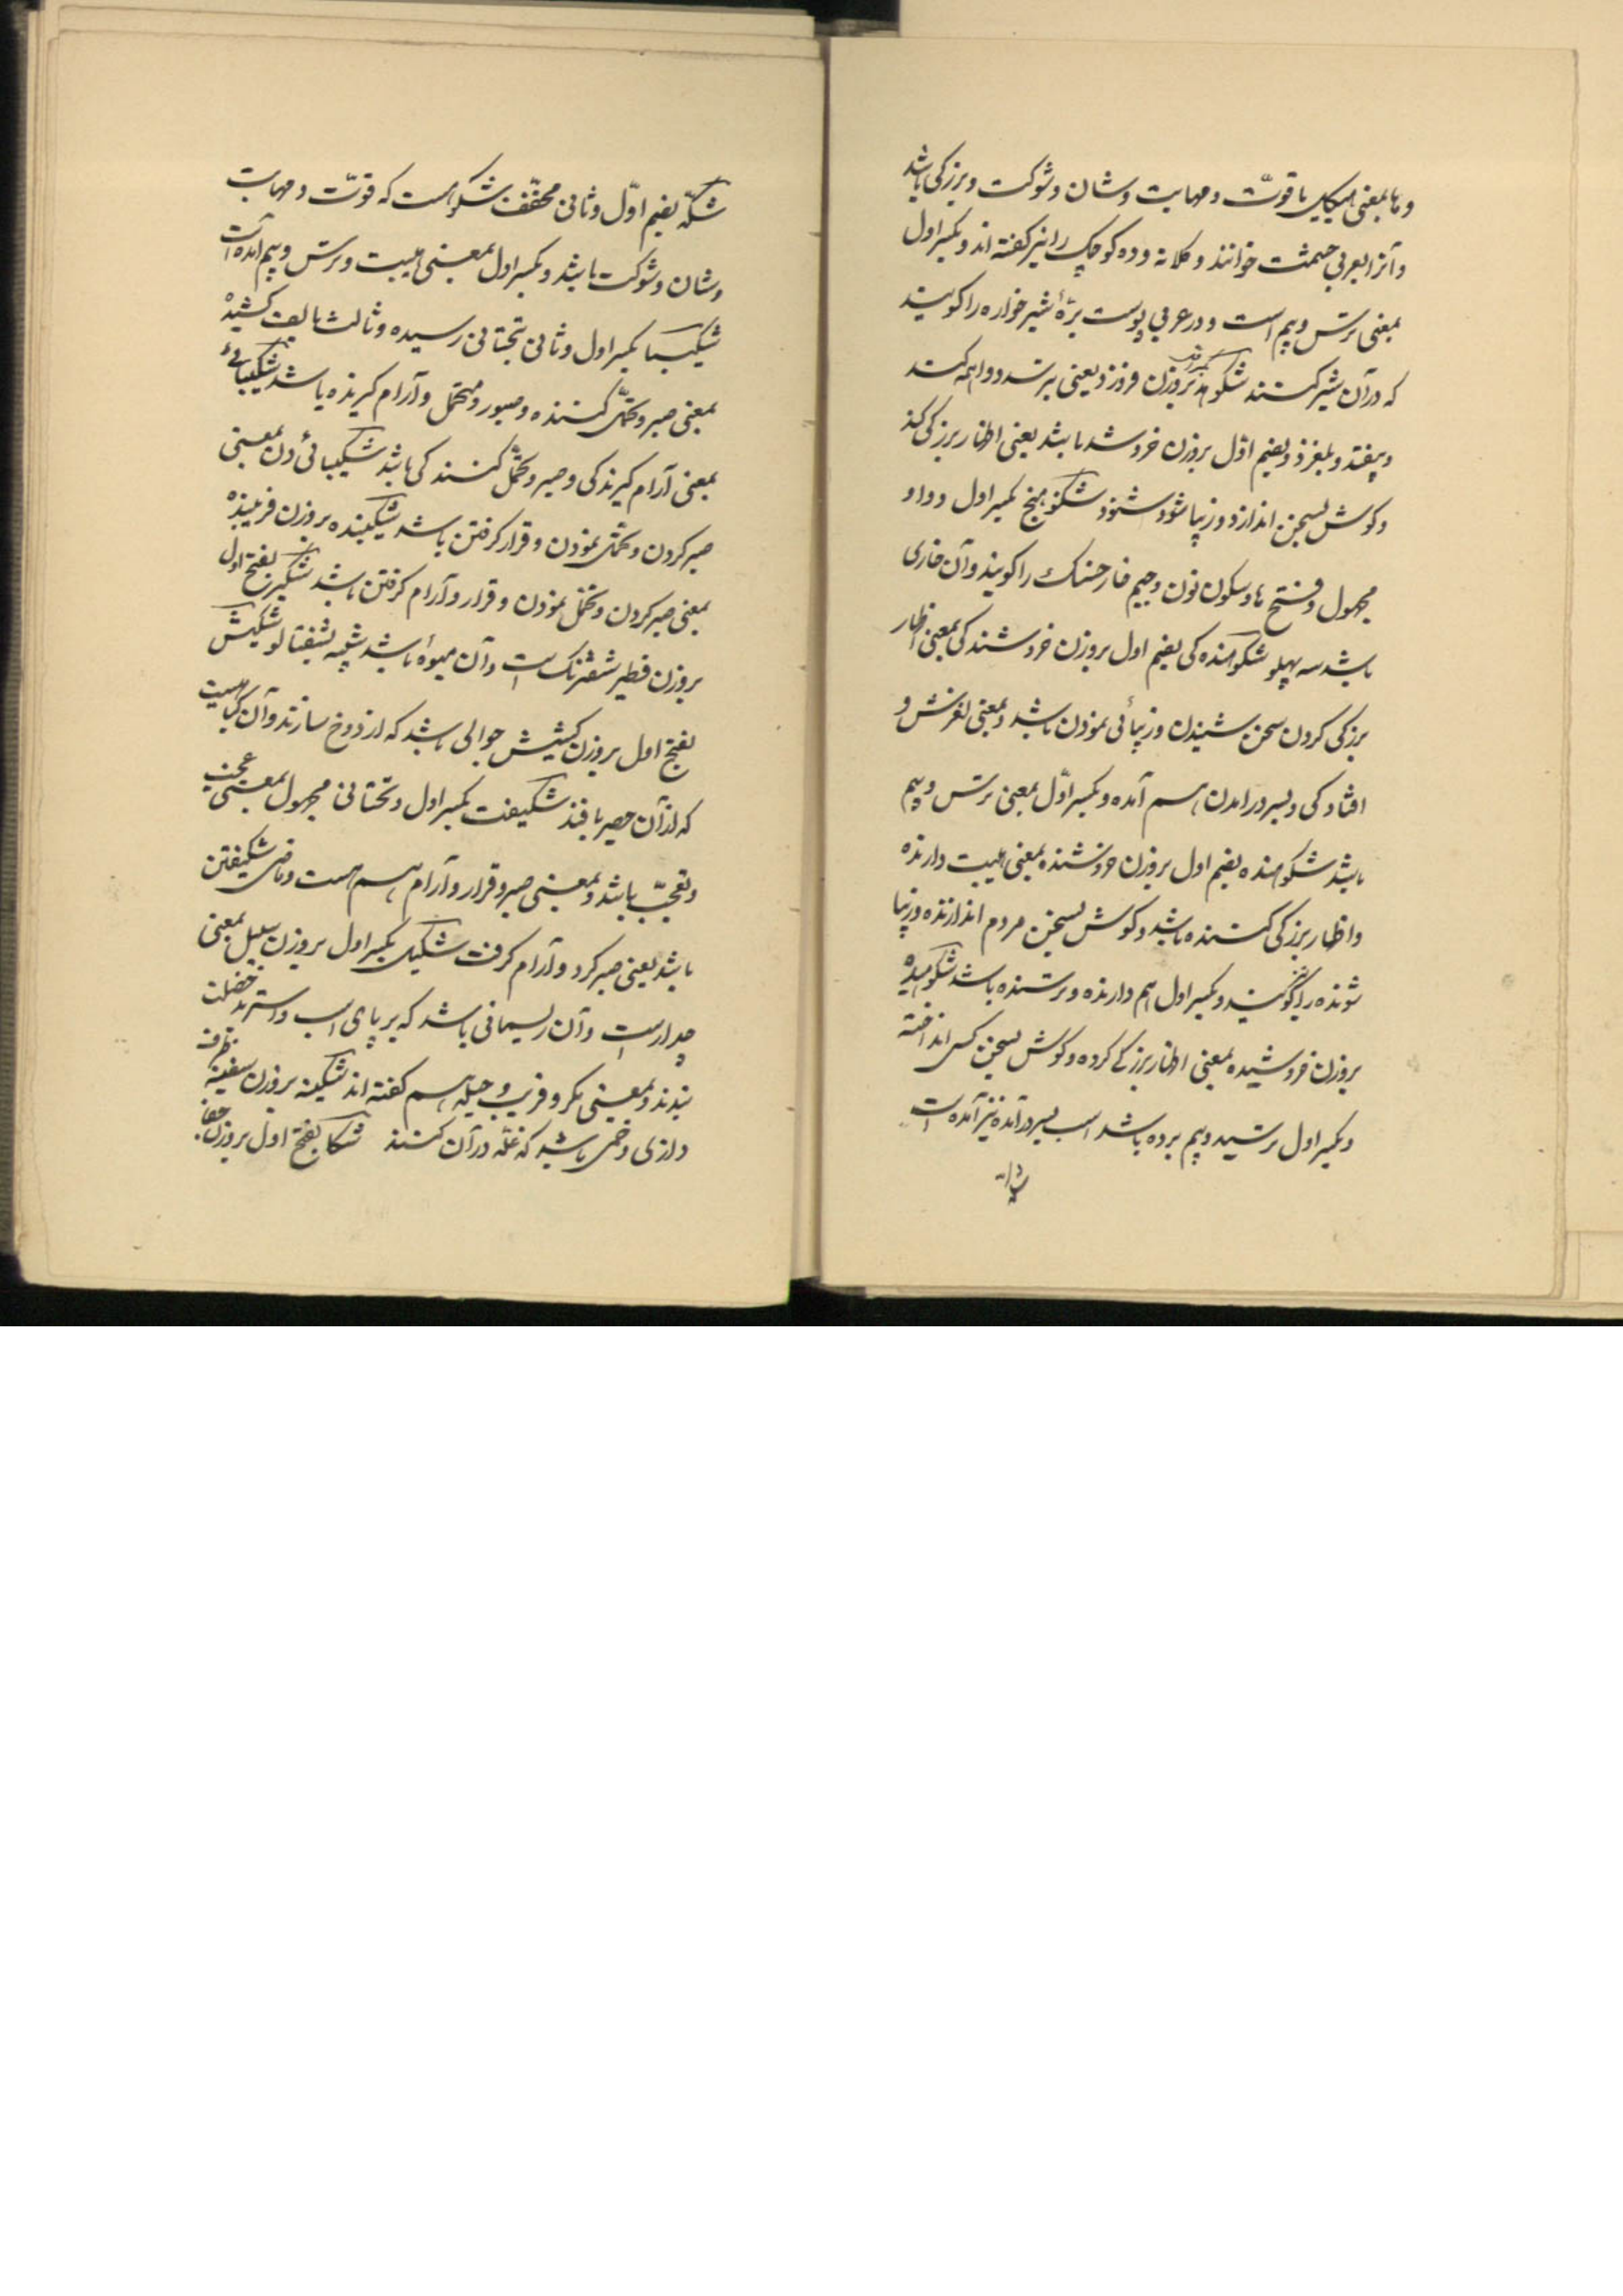 و ها بمعنی هیکل با قوّت و مهابت و شان و شوکت و بزرکی باشد
و آنرا بعربی حشمت خوانند و کلاته و ده کوچک را نیز کفته اند و بکسر اول
بمعنی ترس و بیم است و در عربی پوست برّۀ شیر خواره را کویند
که در آن شیر کنند شکوهد بروزن فروزد یعنی بترسد و واهمه کند
و بیفتد و بلغزد و بضم اوّل بروزن خروشد باشد یعنی اظهار بزرکی کند
و کوش بسخن اندازد و زیبا شود و شنود شکوهنج بکسر اول و واو
مجهول و فتح ها و سکون نون و جیم خار خسک را کویند و آن خاری
باشد سه پهلو شکوهندکی بضم اول بروزن خروشندکی بمعنی اظهار
بزرکی کردن سخن شنیدن و زیبائی نمودن باشد و بمعنی لغزش و
افتادکی و بسر در امدن هم آمده و بکسر اوّل بمعنی ترس و بیم
باشد شکوهنده بضم اول بروزن خروشنده بمعنی هیبت دارنده
و اظهار بزرکی کننده باشد و کوش بسخن مردم اندازنده و زیبا
شونده را کویند و بکسر اول هم دارنده و ترسنده باشد شکوهیده
بروزن خروشیده بمعنی اظهار بزرکی کرده و کوش بسخن کسی انداخته
و بکسر اول ترسیده و بیم برده باشد اسب بسر در آمده نیز آمده است
شکه بضم اوّل و ثانی مخفّف شکوه است که قوّت و مهابت
و شان و شوکت باشد و بکسر اول بمعنی هیبت و ترس و بیم آمده است
شکیبا بکسر اول و ثانی بتحتانی رسیده و ثالث بالف کشیده
بمعنی صبر و تحمّل کننده و صبور و متحمل و آرام کیرنده باشد شکیبائی
بمعنی آرام کیرندکی و صبر و تحمّل کنندکی باشد شکیبائی دن بمعنی
صبر کردن و تحمّل نمودن و قرار کرفتن باشد شکیبنده بروزن فریبنده
بمعنی صبر کردن و تحمّل نمودن و قرار و آرام کرفتن باشد شکیر بفتح اول
بروزن فطیر شفترنک است و آن میوۀ باشد شبیه بشفتالو شکیش
بفتح اول بروزن کشیش جوالی باشد که از دوخ سازند و آن کیاهیست
که از آن حصیر بافند شکیفت بکسر اول و تحتانی مجهول بمعنی عجب
و تعجّب باشد و بمعنی صبر و قرار و آرام هم هست و ماضی شکیفتن
باشد یعنی صبر کرد و آرام کرفت شکیل بکسر اول بروزن سبیل بمعنی
چدار است و آن ریسمانی باشد که بر پای اسب و استر بد خصلت
بندند و بمعنی مکر و فریب و حیله هم کفته اند شکینه بروزن سفینه ظرف
درازی و خمی باشد که غلّه در آن کنند شکا بفتح اول بروزن